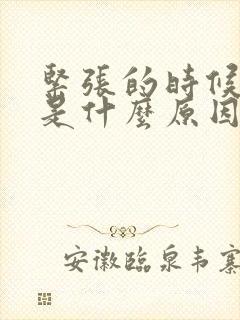 緊張的時候
是什麼原因
安徽臨泉韦寨